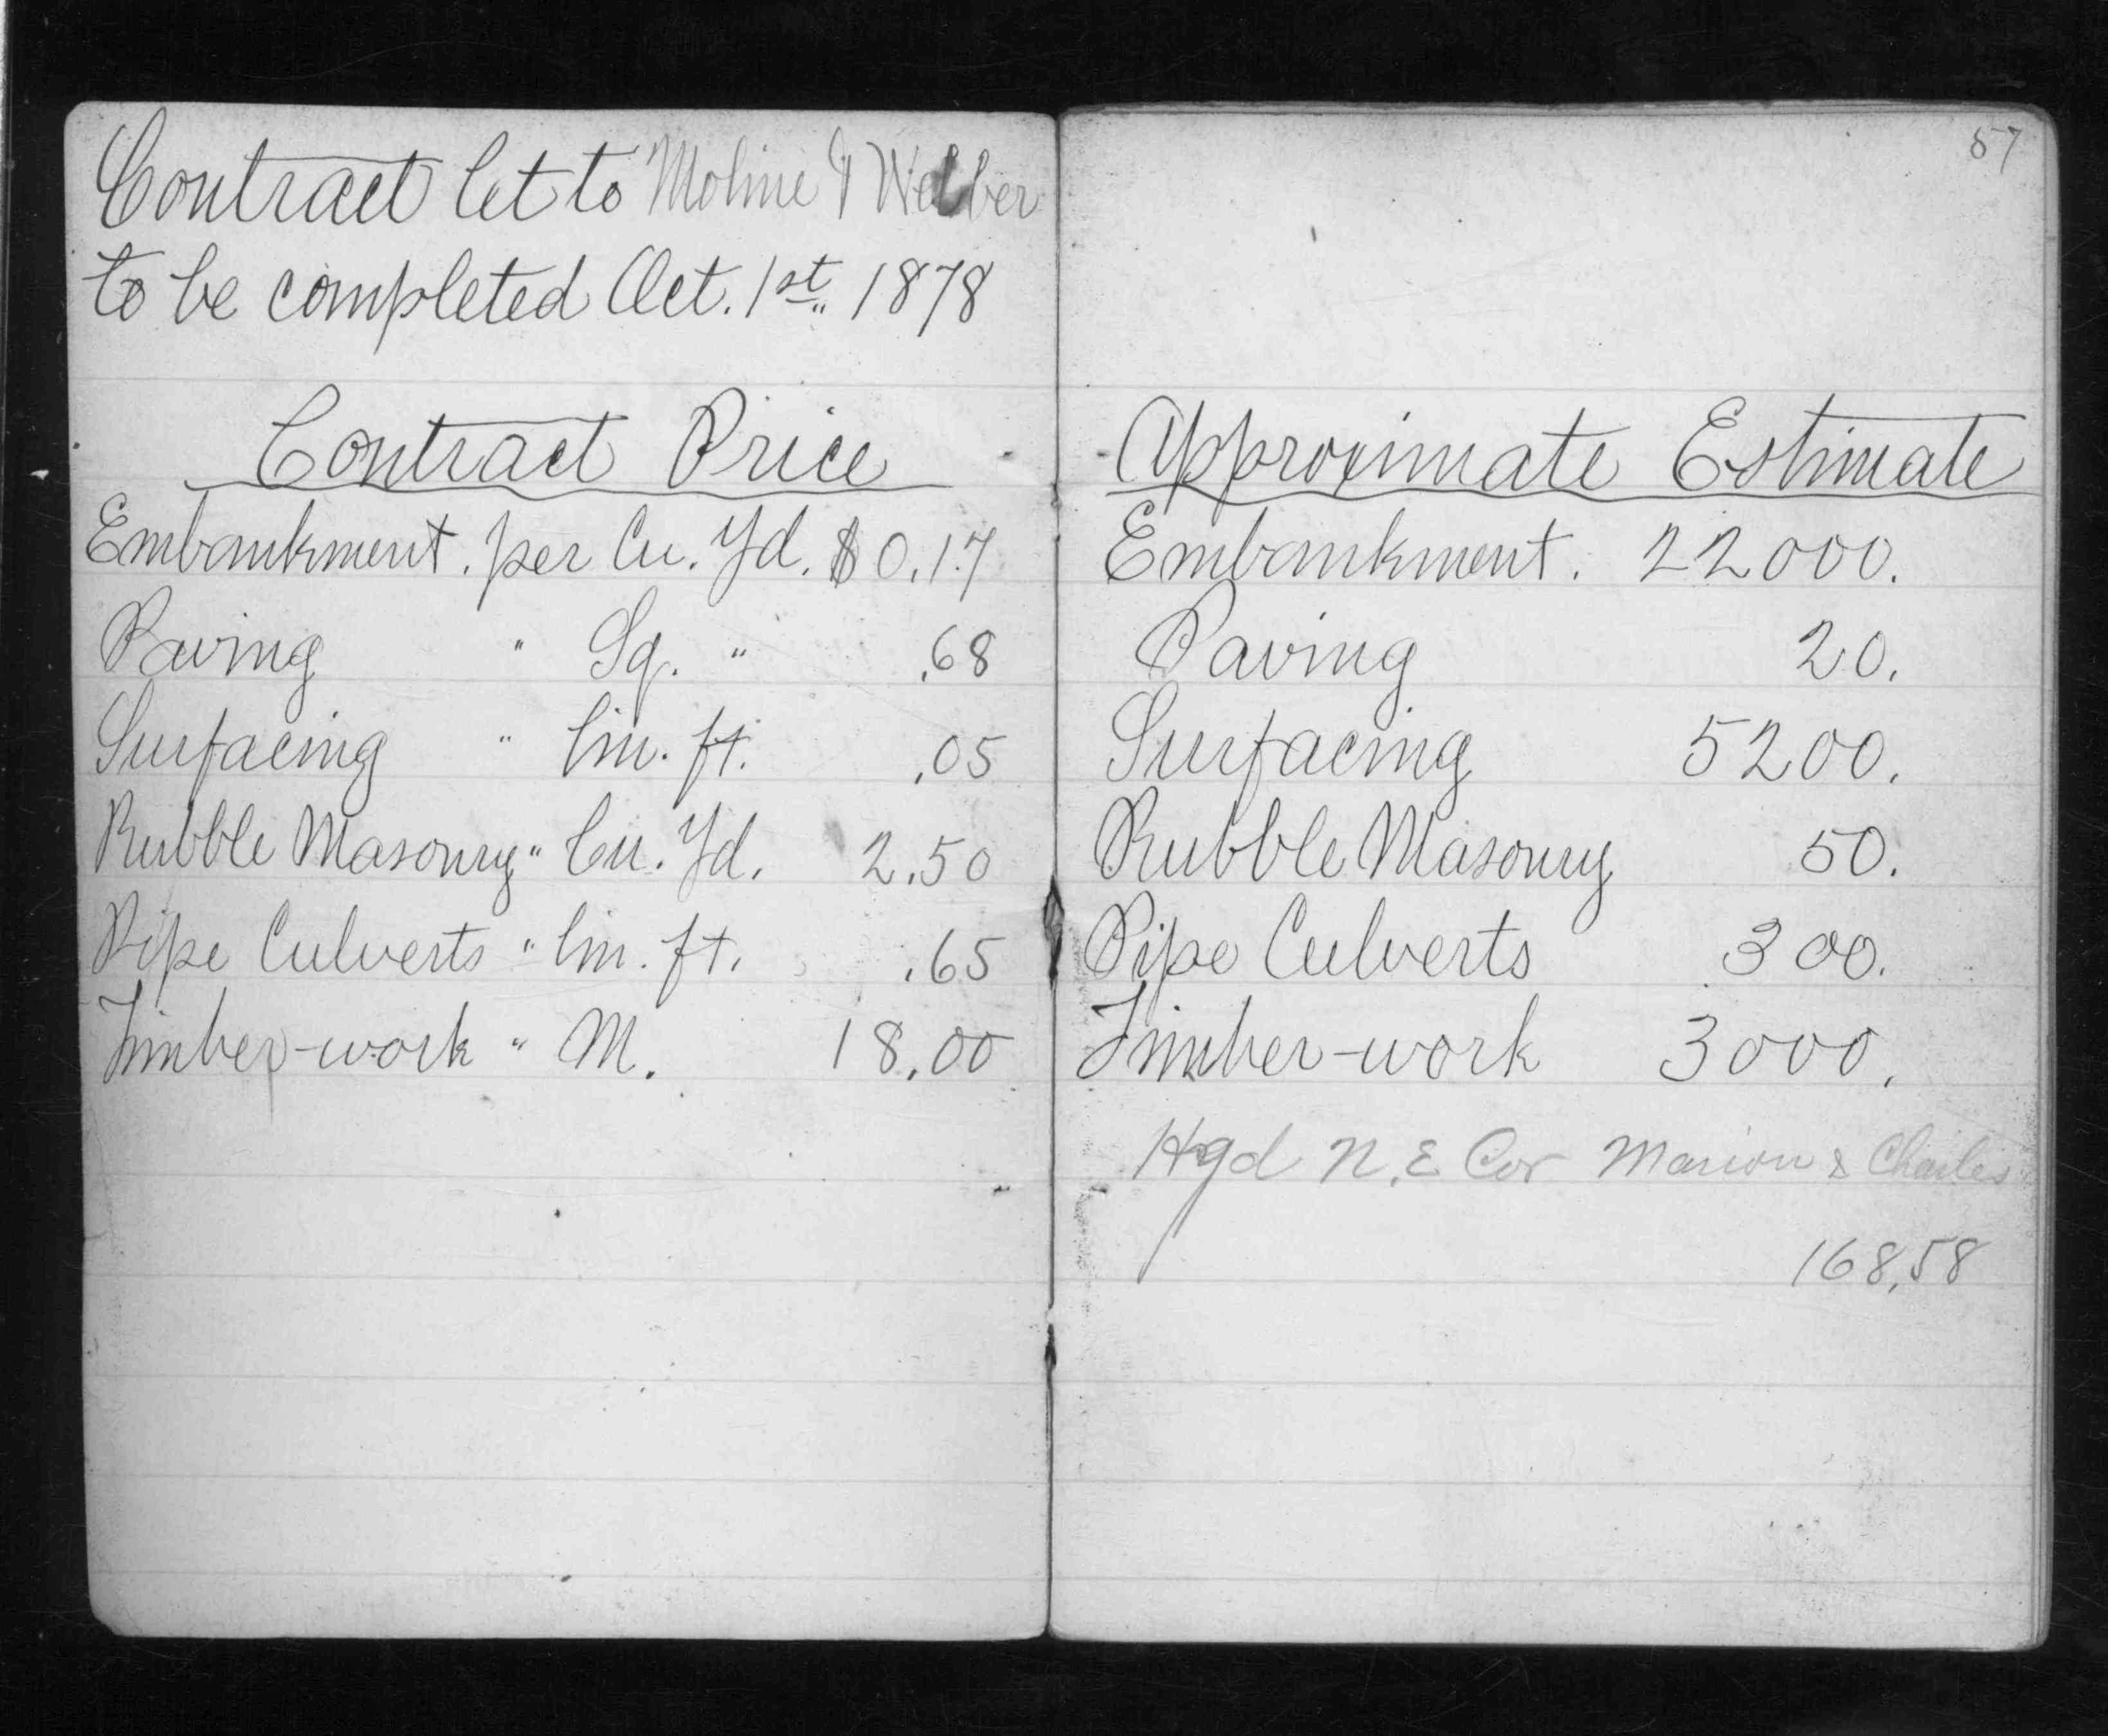 Contract let to Moline & Welber
to be completed Oct. 1st. 1878
Contract Price
Embankment. per Cu. Yd. $0.17
Paving " Sq. " .68
Surfacing " lin. ft. .05
Rubble Masonry " Cu. Yd. 2.50
Pipe Culverts " lin. ft. .65
Timber-work " M. 18.00
57
Approximate Estimate
Embankment. 22000.
Paving 20.
Surfacing 5200.
Rubble Masonry 50.
Pipe Culverts 300.
Timber-work 3000.
Hyd N.E Cor Marion & Charles
168.58